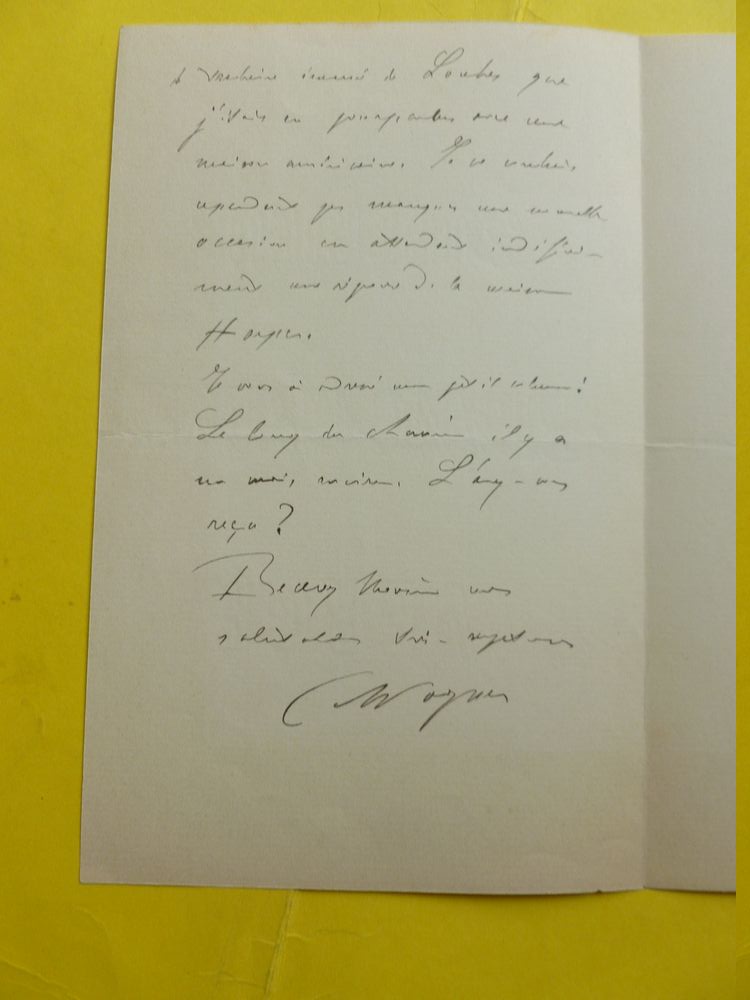 de Londres que
j'étais en pourparlers avec une
maison américaine. Je ne voudrais
cependant pas manquer une nouvelle
occasion en attendant indéfini-
ment une réponse de la maison
Harper.
Je vous ai adressé mon petit volume :
Le long du chemin il y a
un mois, environ. L'avez-vous
reçu ?
Recevez Monsieur mes
salutations très-
C Wagner